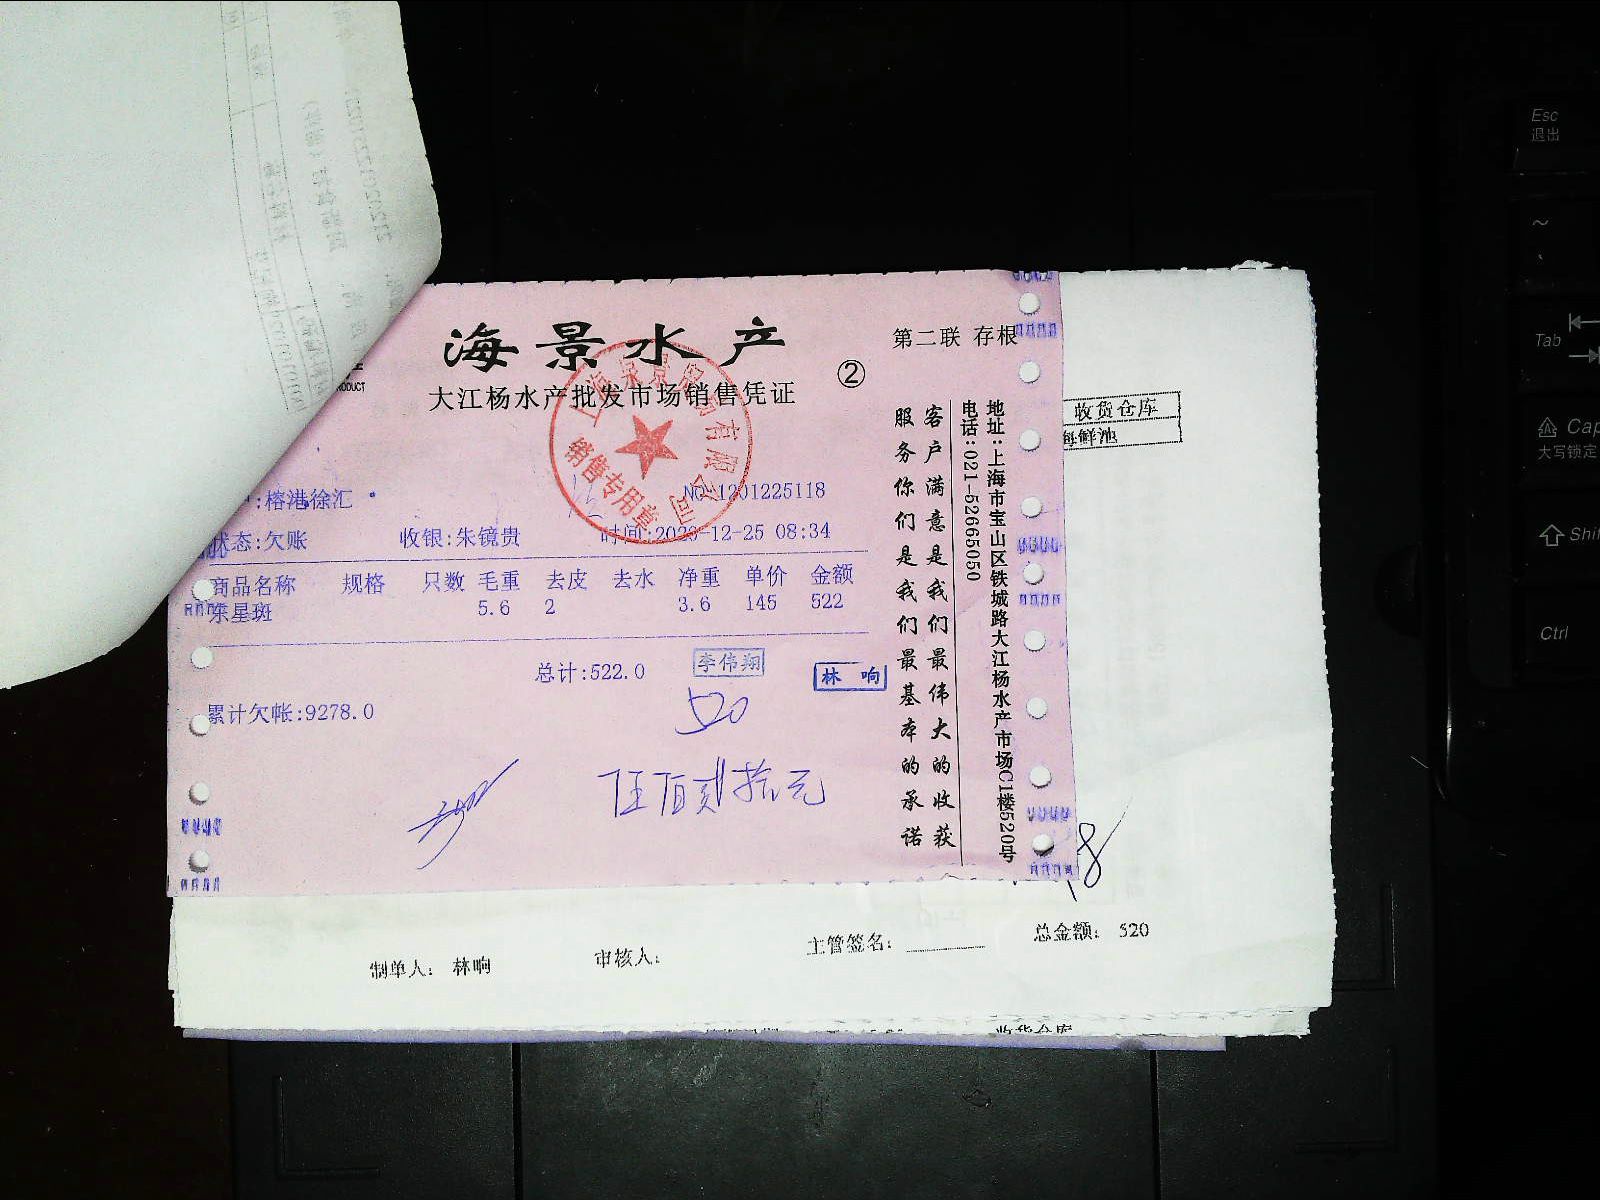 海景水产
大江杨水产批发市场销售凭证
②
第二联 存根
:榕港徐汇
NO:1201225118
状态:欠账 收银:朱镜贵 时间:2020-12-25 08:34
商品名称 规格 只数 毛重 去皮 去水 净重 单价 金额
东星斑 5.6 2 3.6 145 522
总计:522.0
李伟翔
林 响
累计欠帐:9278.0
520
伍佰贰拾元
客户满意是我们最伟大的收获
服务你们是我们最基本的承诺
地址:上海市宝山区铁城路大江杨水产市场C1楼520号
电话:021-52665050
有限公司
销售专用章
收货仓库
海鲜池
18
制单人: 林响 审核人: 主管签名: 总金额: 520
收货仓库
Esc
退出
~
Tab
Cap
大写锁定
Shi
Ctrl